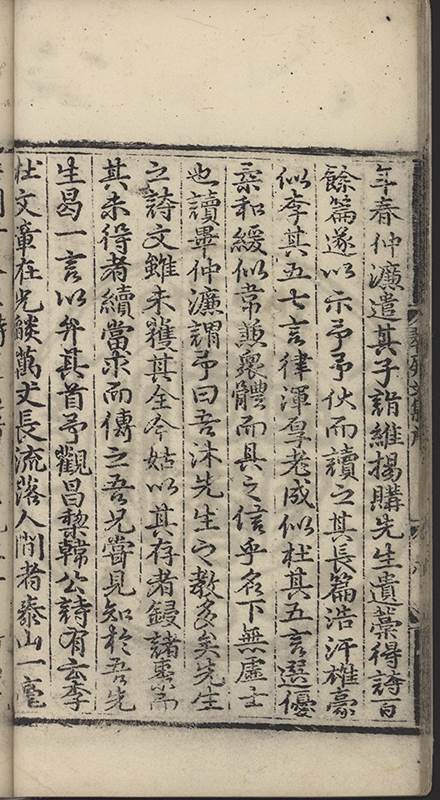 年春仲濂遣其子詣維揚購先生遺藁得詩百
餘篇遂以示予予伏而讀之其長篇浩汗雄豪
似李其五七言律渾厚老成似杜其五言選優
柔和緩似韋兼衆體而具之信乎名下無虛士
也讀畢仲濂謂予曰吾沐先生之教多矣先生
之詩文雖未獲其全今姑以其存者鋟諸棗
其未得者續當求而傳之吾兄嘗見知於吾先
生曷一言以弁其首予觀昌黎韓公詩有云李
杜文章在光燄萬丈長流落人間者泰山一毫